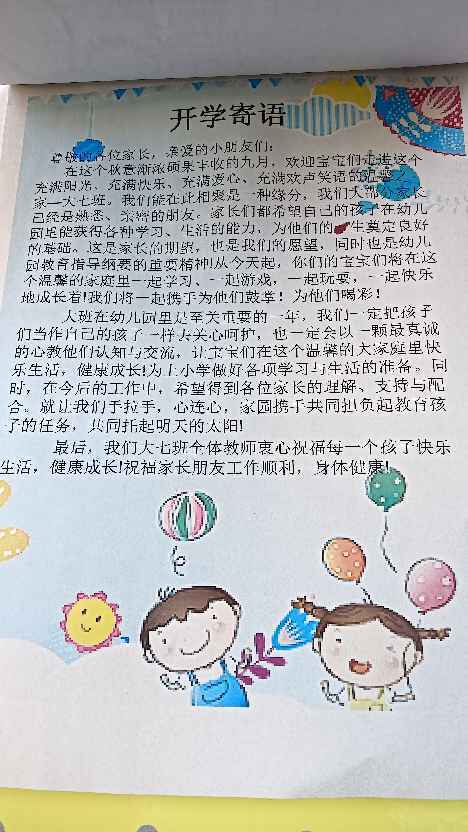 开学寄语
尊敬的各位家长，亲爱的小朋友们：
在这个秋意渐浓硕果丰收的九月，欢迎宝宝们走进这个
充满阳光、充满快乐、充满爱心、充满欢声笑语的温馨之
家—大七班。我们能在此相聚是一种缘分，我们大部分家长
已经是熟悉、亲密的朋友。家长们都希望自己的孩子在幼儿
园里能获得各种学习、生活的能力，为他们的一生奠定良好
的基础。这是家长的期望，也是我们的愿望，同时也是幼儿
园教育指导纲要的重要精神!从今天起，你们的宝宝们将在这
个温馨的家庭里一起学习、一起游戏，一起玩耍，一起快乐
地成长着!我们将一起携手为他们鼓掌！为他们喝彩！
大班在幼儿园里是至关重要的一年，我们一定把孩子
们当作自己的孩子一样去关心呵护，也一定会以一颗最真诚
的心教他们认知与交流，让宝宝们在这个温馨的大家庭里快
乐生活，健康成长!为上小学做好各项学习与生活的准备。同
时，在今后的工作中，希望得到各位家长的理解、支持与配
合。就让我们手拉手，心连心，家园携手共同担负起教育孩
子的任务，共同托起明天的太阳!
最后，我们大七班全体教师衷心祝福每一个孩子快乐
生活，健康成长!祝福家长朋友工作顺利，身体健康!